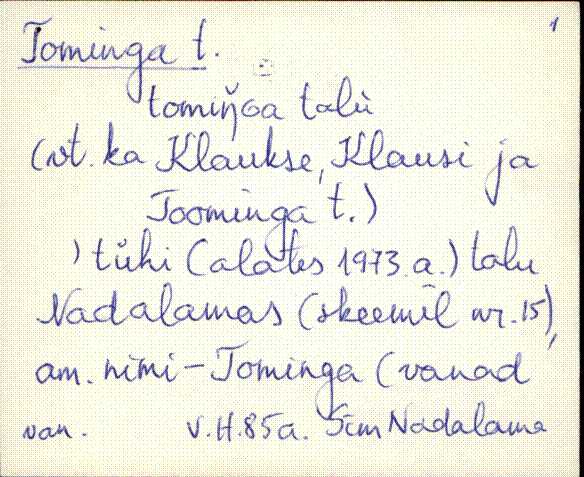 1
Tominga t.
tomiŋ̆ɢa talù
(vt. ka Klaukse, Klausi ja
Toominga t.)
) tühi (alates 1973.a.) talu
Nadalamas (skeemil nr. 15),
am. nimi – Tominga (vanad
van. V.H. 85a. Sim Nadalama